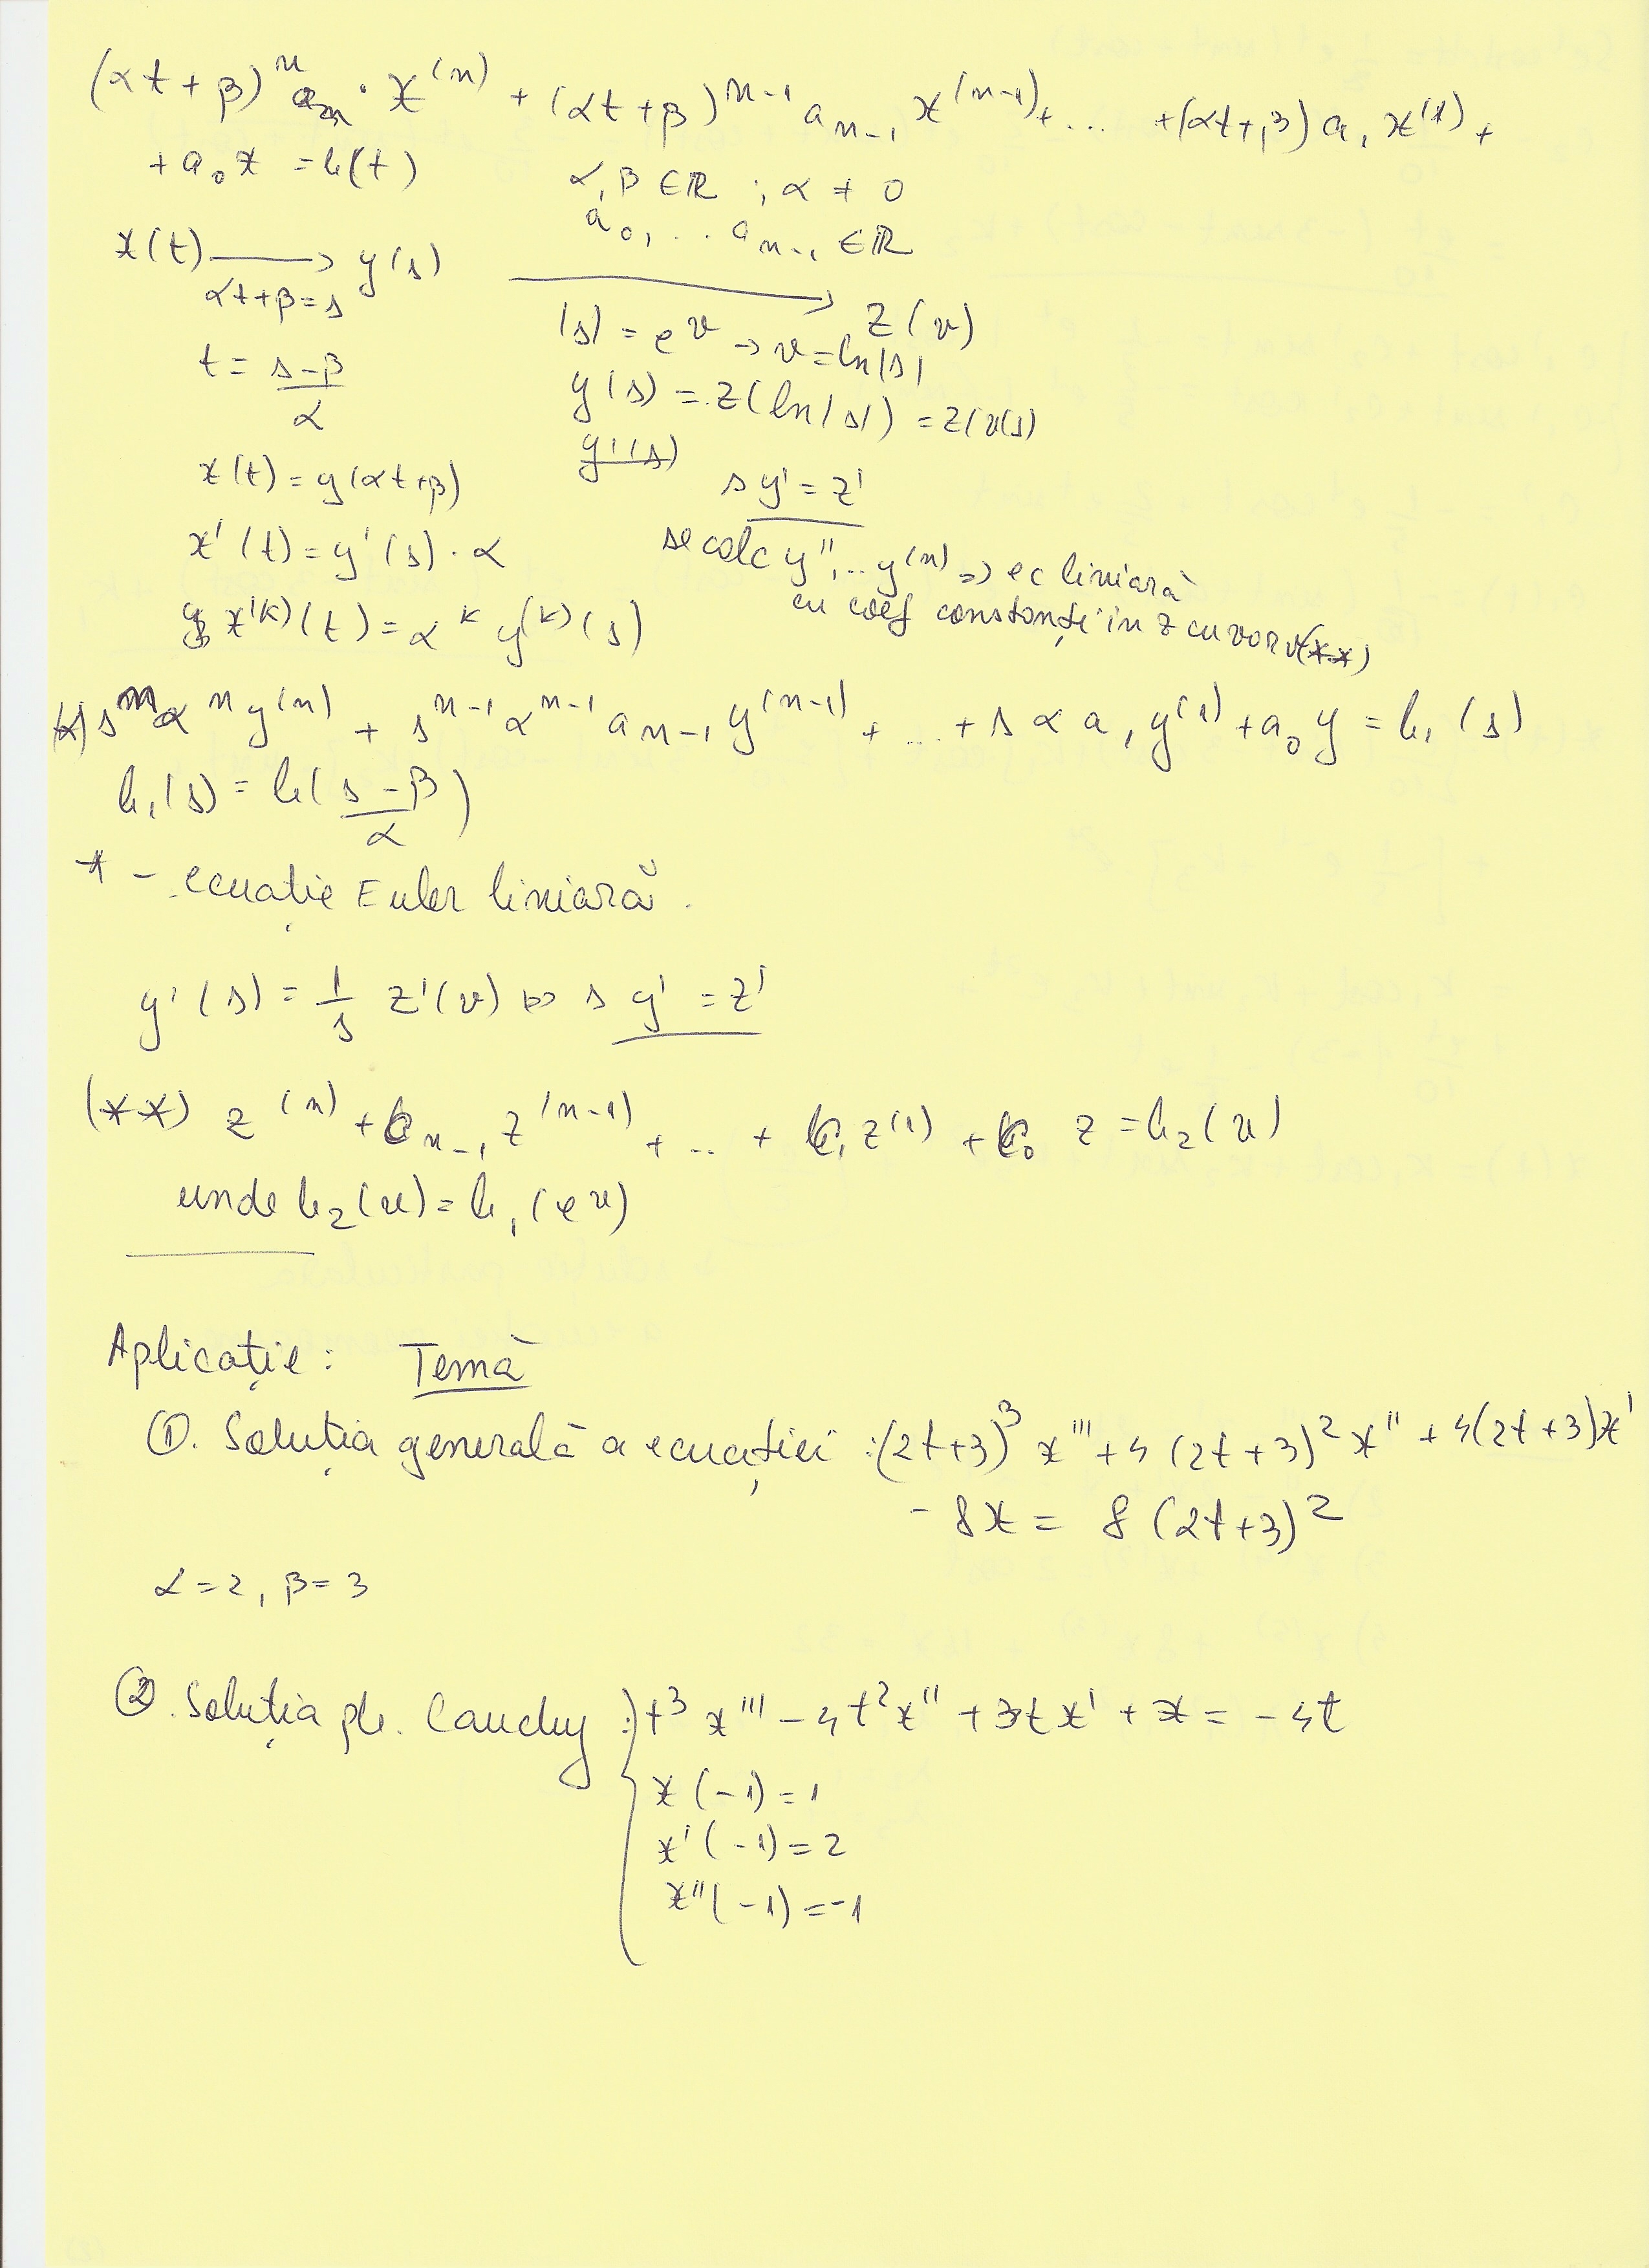 (αt+β)ⁿ aₙ · x⁽ⁿ⁾ + (αt+β)ⁿ⁻¹ aₙ₋₁ x⁽ⁿ⁻¹⁾+... +(αt+β) a₁ x⁽¹⁾ +
+a₀x = h(t)
α,β∈ℝ ; α ≠ 0
a₀,... aₙ₋₁ ∈ℝ
x(t) → y(s)
αt+β=s
→ z(v)
|s| = eᵛ → v = ln|s|
t = (s-β)/α
y(s) = z(ln|s|) = z(v(s)
x(t) = y(αt+β)
s y' = z'
x'(t) = y'(s) · α
se calc y'',...y⁽ⁿ⁾ => ec liniară
cu coef constanți in z cu var v(**)
x⁽ᵏ⁾(t) = αᵏ y⁽ᵏ⁾(s)
(*) sⁿ αⁿ y⁽ⁿ⁾ + sⁿ⁻¹ αⁿ⁻¹ aₙ₋₁ y⁽ⁿ⁻¹⁾ + ... + s α a₁ y⁽¹⁾ + a₀ y = h₁(s)
h₁(s) = h((s-β)/α)
* - ecuație Euler liniară.
y'(s) = 1/s z'(v) ⇔ s y' = z'
(**) z⁽ⁿ⁾ + cₙ₋₁ z⁽ⁿ⁻¹⁾ + .. + c₁ z⁽¹⁾ + c₀ z = h₂(u)
unde h₂(u) = h₁(eᵘ)
Aplicație: Temă
①. Soluția generală a ecuației :(2t+3)³ x''' + 4(2t+3)² x'' + 4(2t+3)x'
- 8x = 8(2t+3)²
α=2, β=3
②. Soluția pb. Cauchy : t³ x''' - 4t²x'' + 3t x' + x = -4t
x(-1) = 1
x'(-1) = 2
x''(-1) = -1